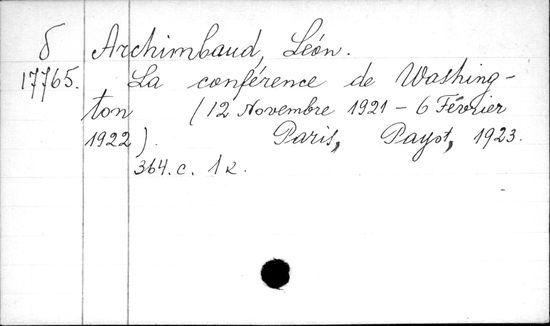 δ Archimbaud, Léon.
17765. La conférence de Washing-
ton (12 Novembre 1921 - 6 Février
1922). Paris, Payot, 1923.
364.c. 1 k.